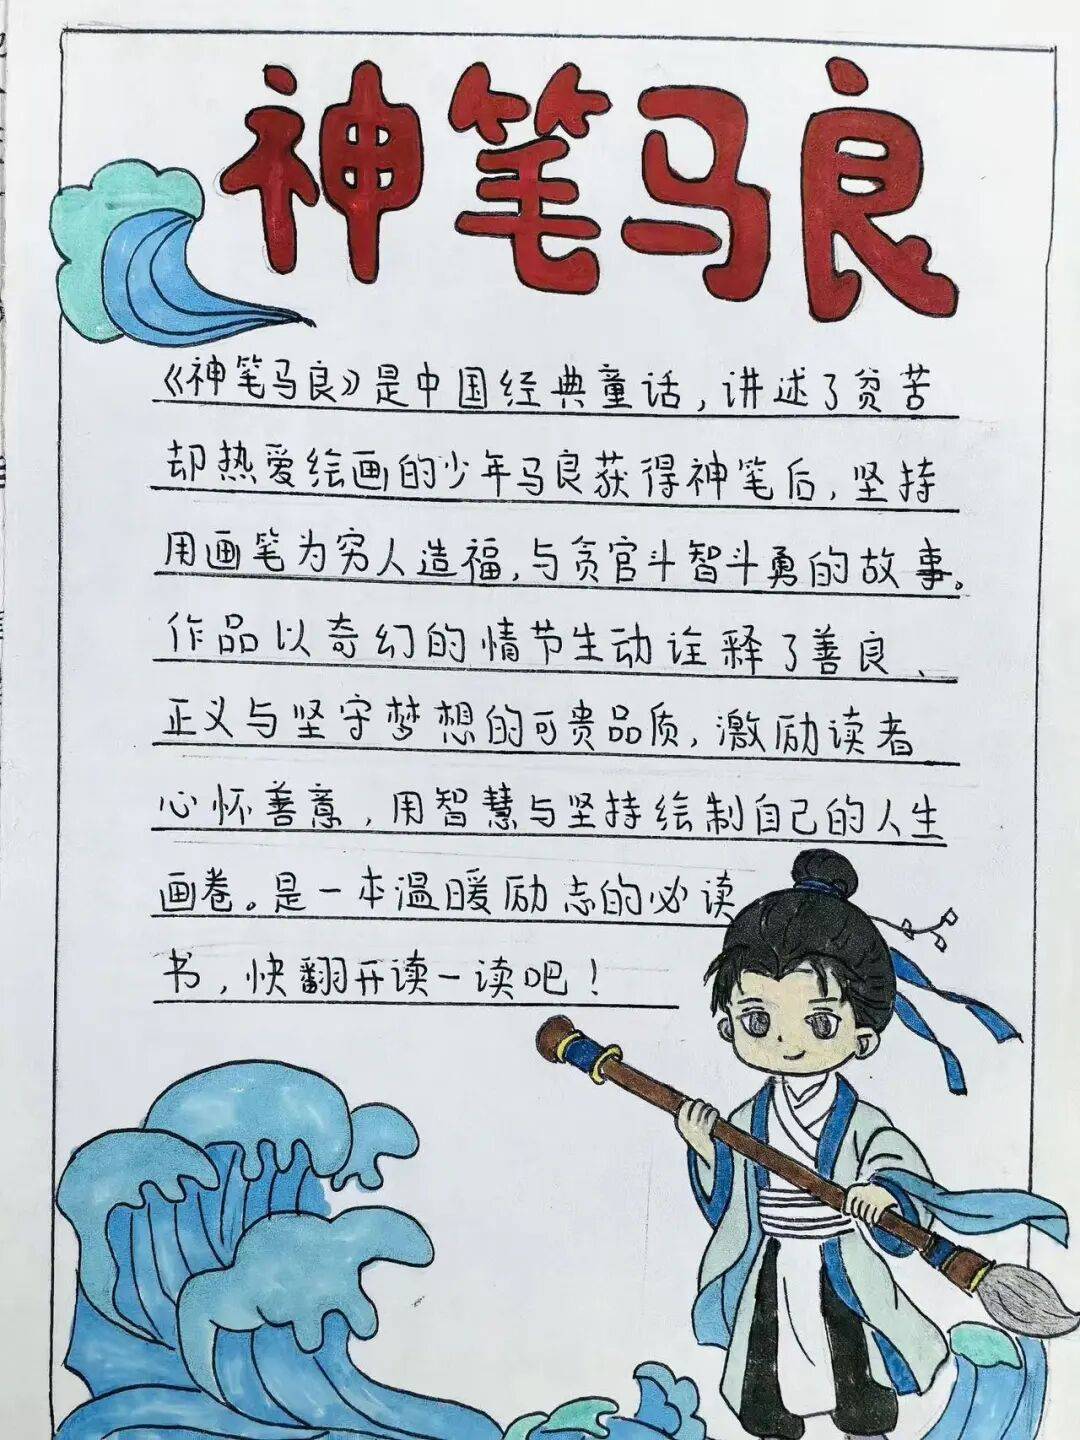 神笔马良
《神笔马良》是中国经典童话，讲述了贫苦
却热爱绘画的少年马良获得神笔后，坚持
用画笔为穷人造福，与贪官斗智斗勇的故事。
作品以奇幻的情节生动诠释了善良、
正义与坚守梦想的可贵品质，激励读者
心怀善意，用智慧与坚持绘制自己的人生
画卷。是一本温暖励志的必读
书，快翻开读一读吧！